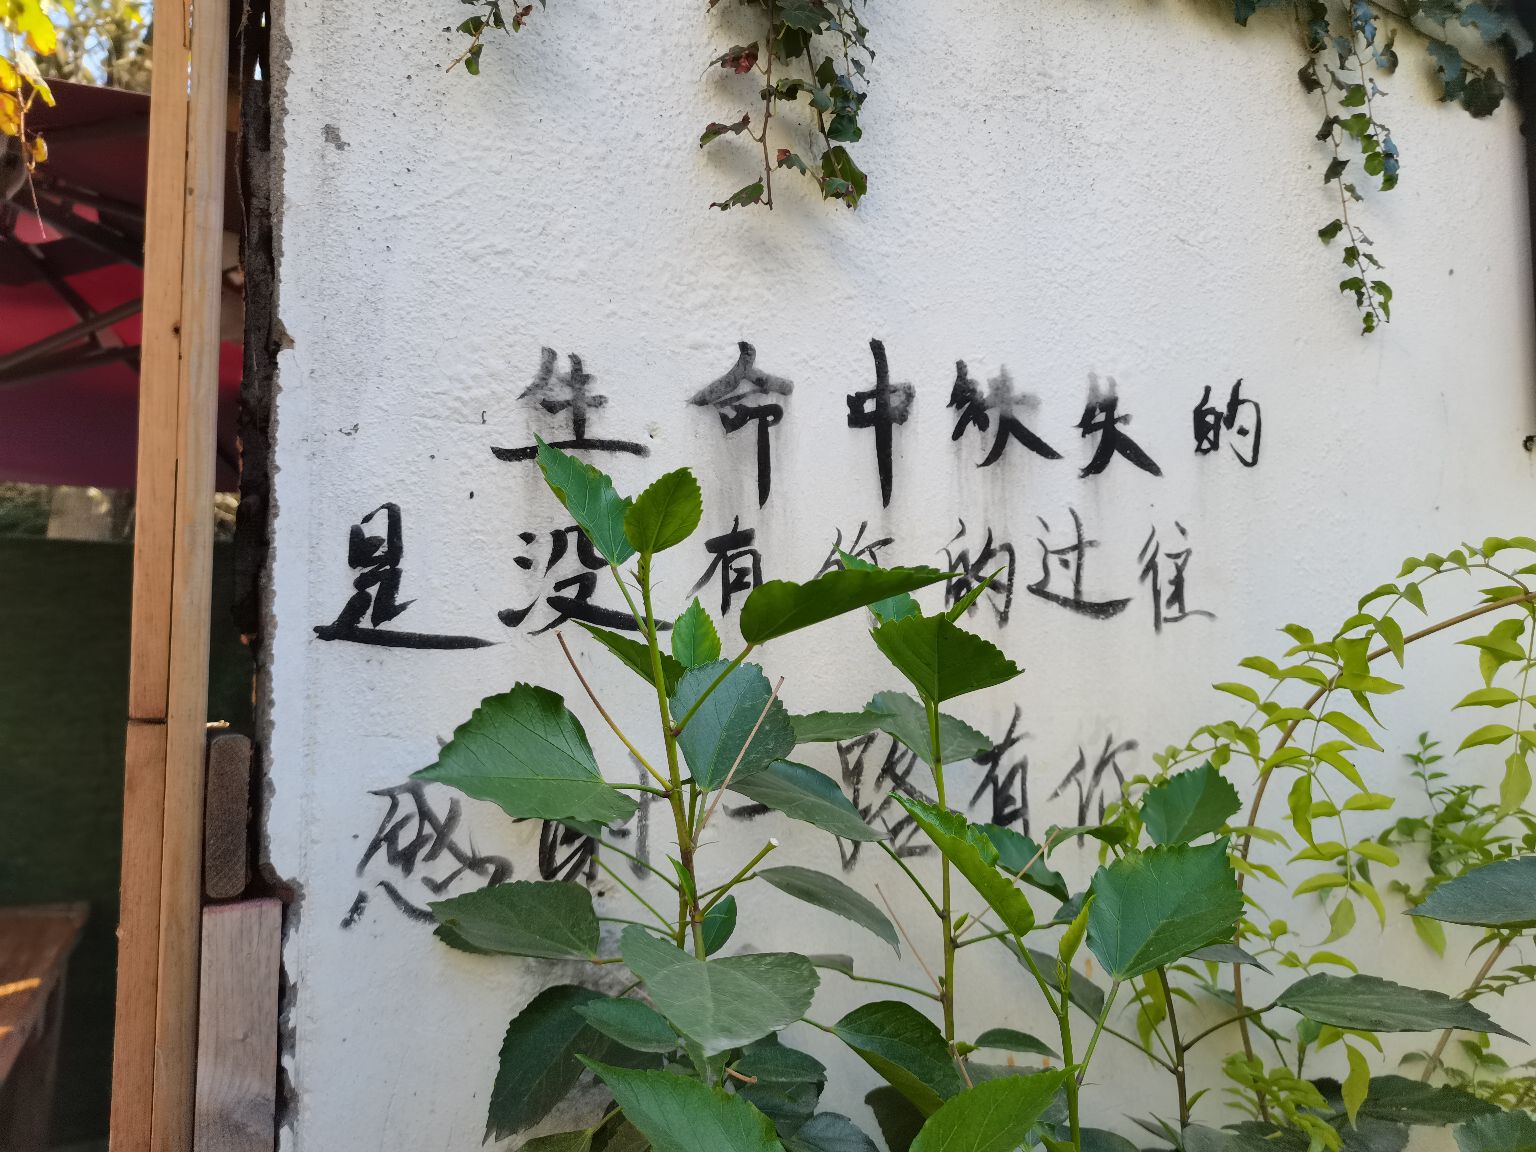 生命中缺失的
是没有你的过往
感谢一路有你